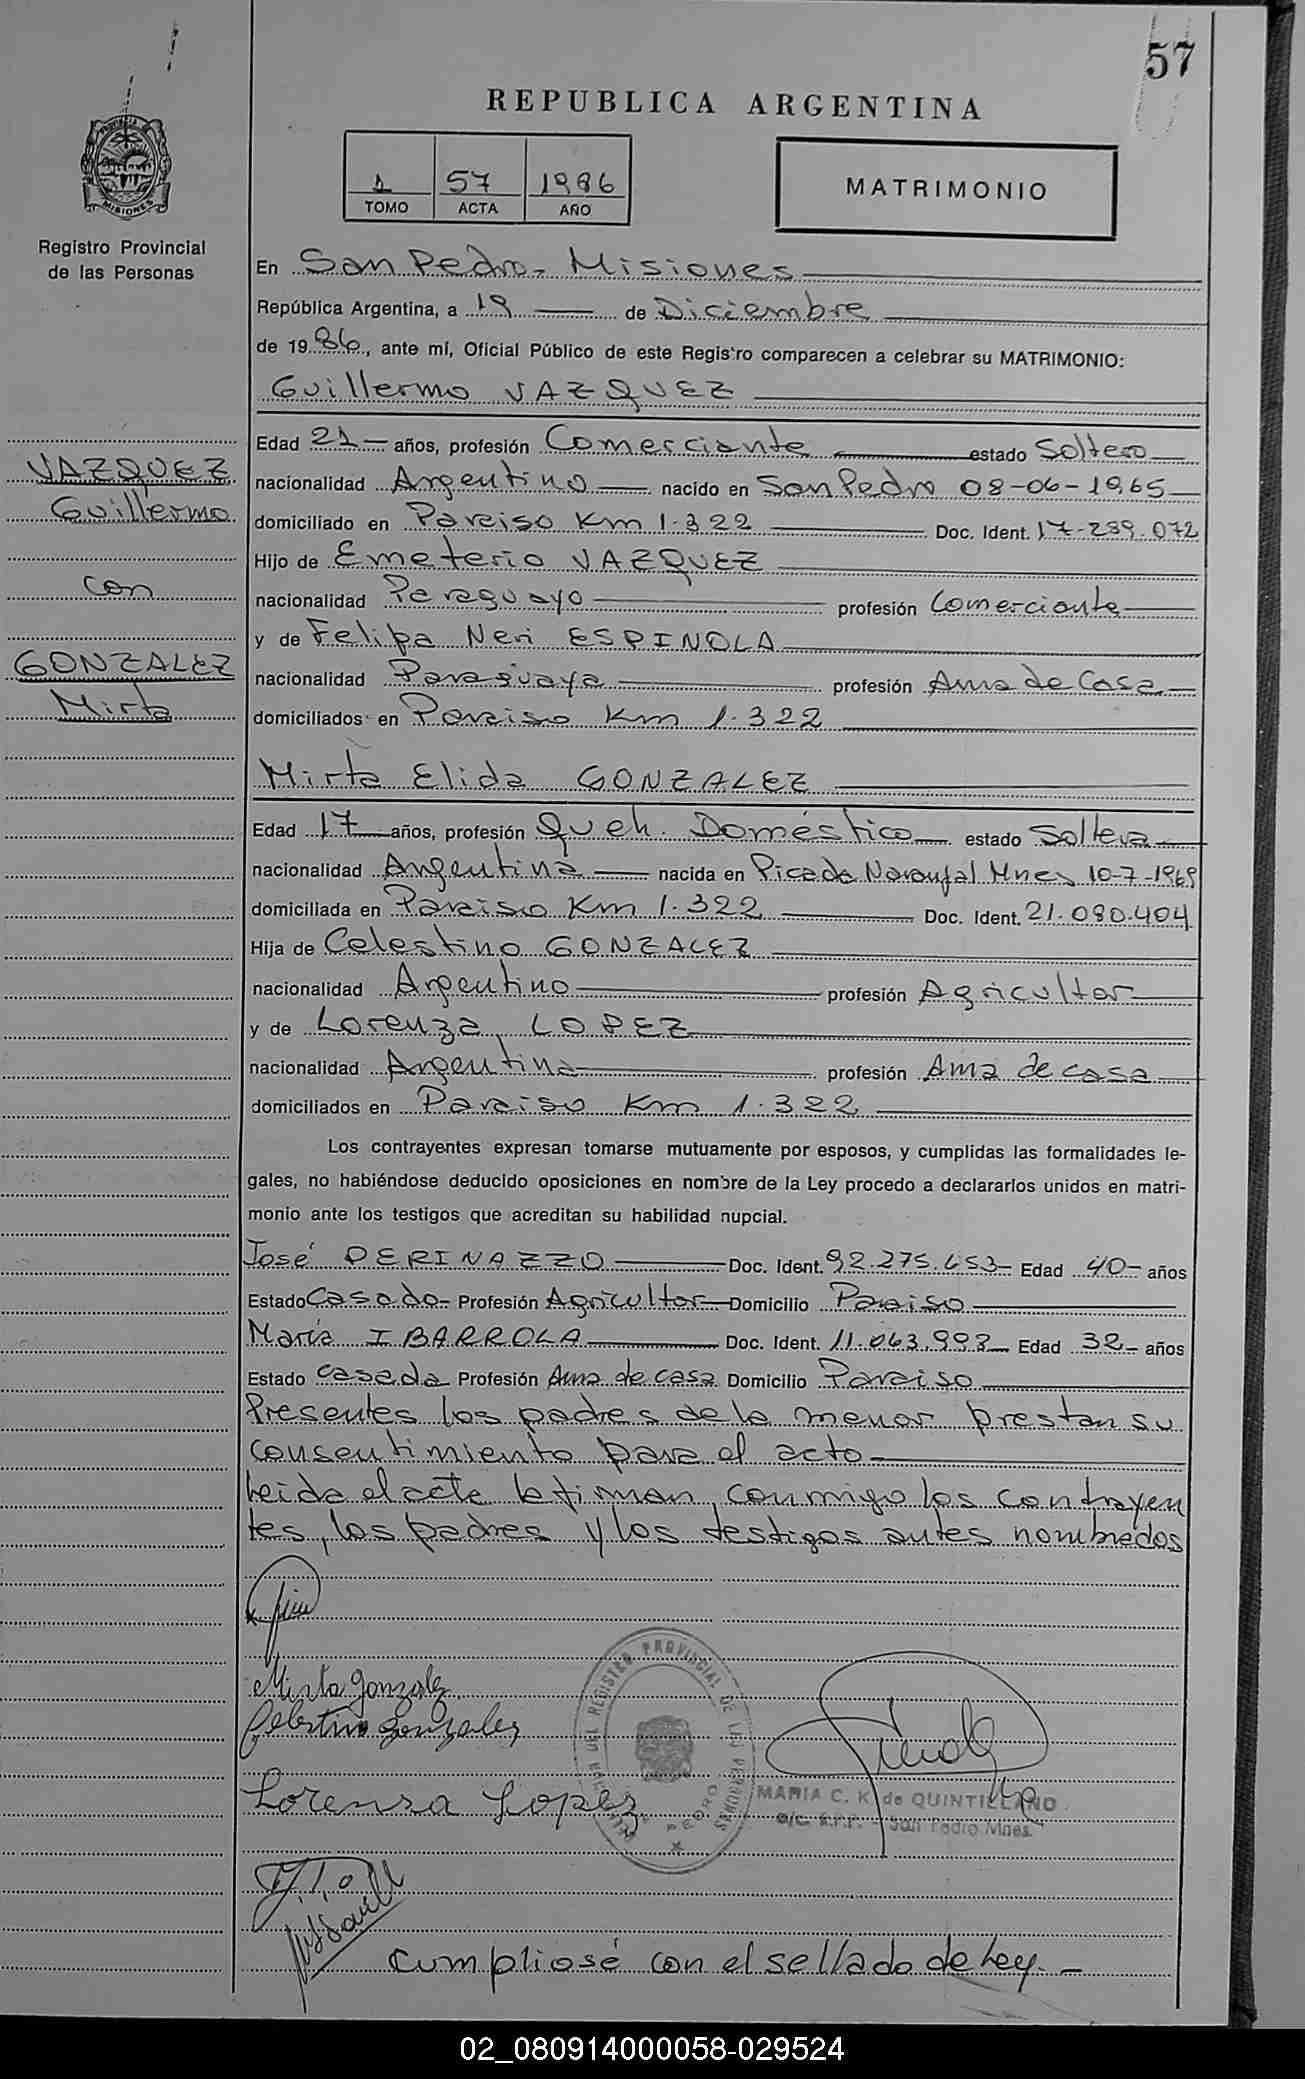 57
REPUBLICA ARGENTINA
1 57 1986
TOMO ACTA AÑO
MATRIMONIO
PROVINCIA DE MISIONES
Registro Provincial
de las Personas
En San Pedro - Misiones
República Argentina, a 19 de Diciembre
de 1986, ante mí, Oficial Público de este Registro comparecen a celebrar su MATRIMONIO:
Guillermo VAZQUEZ
VAZQUEZ
Guillermo
con
GONZALEZ
Mirta
Edad 21 años, profesión Comerciante estado Soltero
nacionalidad Argentino nacido en San Pedro 08-06-1965
domiciliado en Paraiso Km 1.322 Doc. Ident. 17.239.072
Hijo de Emeterio VAZQUEZ
nacionalidad Paraguayo profesión Comerciante
y de Felipa Neri ESPINOLA
nacionalidad Paraguaya profesión Ama de Casa
domiciliados en Paraiso Km 1.322
Mirta Elida GONZALEZ
Edad 17 años, profesión Queh. Doméstico estado Soltera
nacionalidad Argentina nacida en Picada Naranjal Mnes 10-7-1969
domiciliada en Paraiso Km 1.322 Doc. Ident. 21.080.404
Hija de Celestino GONZALEZ
nacionalidad Argentino profesión Agricultor
y de Lorenza LOPEZ
nacionalidad Argentina profesión Ama de casa
domiciliados en Paraiso Km 1.322
Los contrayentes expresan tomarse mutuamente por esposos, y cumplidas las formalidades le-
gales, no habiéndose deducido oposiciones en nombre de la Ley procedo a declararlos unidos en matri-
monio ante los testigos que acreditan su habilidad nupcial.
José PERINAZZO Doc. Ident. 92.275.653 Edad 40 años
Estado Casado Profesión Agricultor Domicilio Paraiso
María IBARROLA Doc. Ident. 11.063.993 Edad 32 años
Estado casada Profesión Ama de casa Domicilio Paraiso
Presentes los padres de la menor prestan su
consentimiento para el acto
Leida el acta la firman conmigo los contrayen
tes, los padres y los testigos antes nombrados
Mirta Gonzalez
Celestino Gonzalez
Lorenza Lopez
REGISTRO PROVINCIAL DE LAS PERSONAS
PEDRO
MARIA C. K. de QUINTILLANO
o/c. R.P.P. - San Pedro Mnes.
Cumpliosé con el sellado de Ley. -
02_080914000058-029524